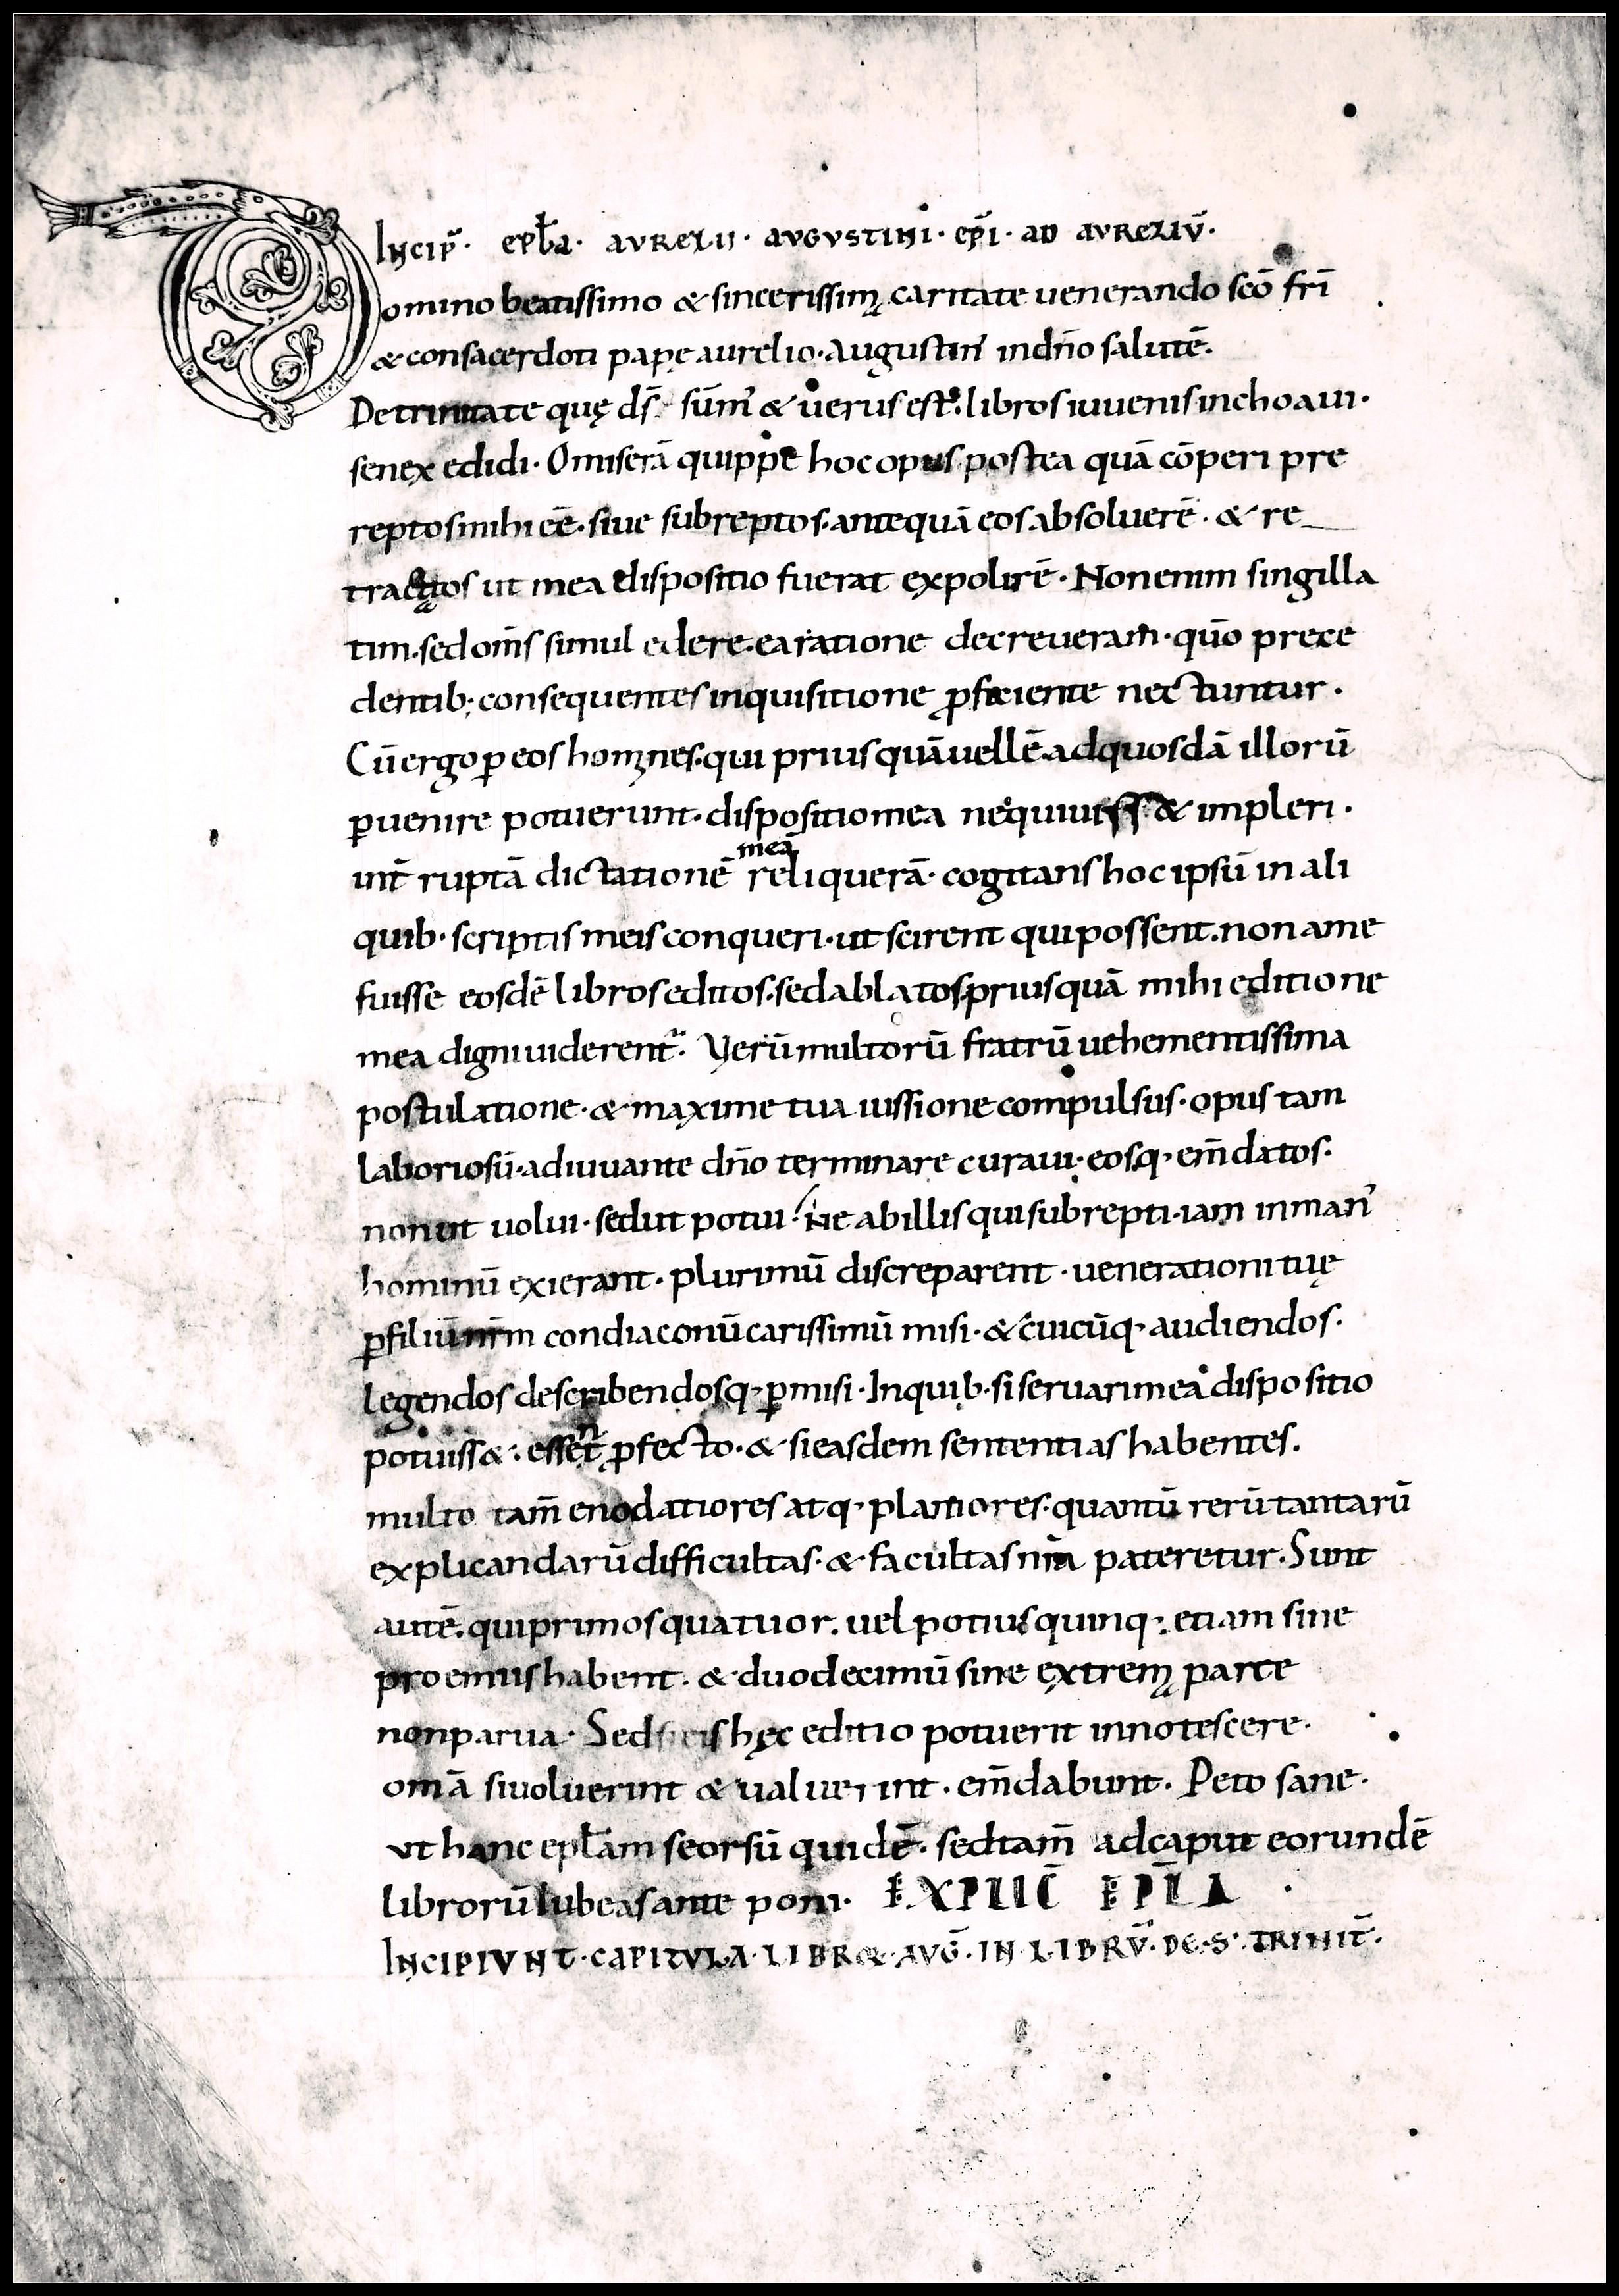 INCIP̄· EPLA· AURELII· AUGUSTINI· EPĪ· AD AURELIŪ·
Domino beatissimo & sincerissimę caritate uenerando scō frī
& consacerdoti papę aurelio· Augustin' in dn̄o salutē·
De trinitate quę ds̄ sūm' & uerus est· libros iuuenis inchoaui·
senex edidi· Omiserā quippe hoc opus postea quā cōperi pre
reptos mihi eē· siue subreptos· antequā eos absoluerē· & re
tractos ut mea dispositio fuerat expolirē· Non enim singilla
tim· sed om̄s simul edere ea ratione decreueram· quō prece
dentib; consequentes inquisitione ꝓficiente nectuntur·
Cū ergo ꝑ eos homines· qui prius quā uellē ad quosdā illorū
ꝑuenire potuerunt· dispositio mea nequiuiss& impleri·
int̄ ruptā dictationē meā reliquerā· cogitans hoc ipsū in ali
quib· scriptis meis conqueri· ut scirent qui possent· non a me
fuisse eosdē libros editos· sed ablatos prius quā mihi editione
mea digni uiderent̄· Verū multorū fratrū uehementissima
postulatione· & maxime tua iussione compulsus· opus tam
laboriosū· adiuuante dn̄o terminare curaui· eosq· em̄datos·
non ut uolui· sed ut potui· ne ab illis qui subrepti· iam in man'
hominū exierant· plurimū discreparent· uenerationi tuę
ꝑ filiū nr̄m condiaconū carissimū misi· & cuicūq· audiendos·
legendos describendosq· ꝑmisi· In quib· si seruari mea dispositio
potuiss&· essen̄t ꝓfecto· & si easdem sententias habentes·
multo tam̄ enodatiores atq· planiores· quantū rerū tantarū
explicandarū difficultas· & facultas nr̄a pateretur· Sunt
autē· qui primos quatuor· uel potius quinq· etiam sine
proemiis habent· & duodecimū sine extremę parte
non parua· Sed si eis hęc editio potuerit innotescere·
om̄a si uoluerint & ualuerint· em̄dabunt· Peto sane·
ut hanc epl̄am seorsū quidē· sed tam̄ ad caput eorundē
librorū iubeas ante poni· EXPLIC̄ EPL̄A
INCIPIUNT· CAPITULA· LIBRO&· AUG̅· IN· LIBRŪ· DE· S· TRINIT̄·